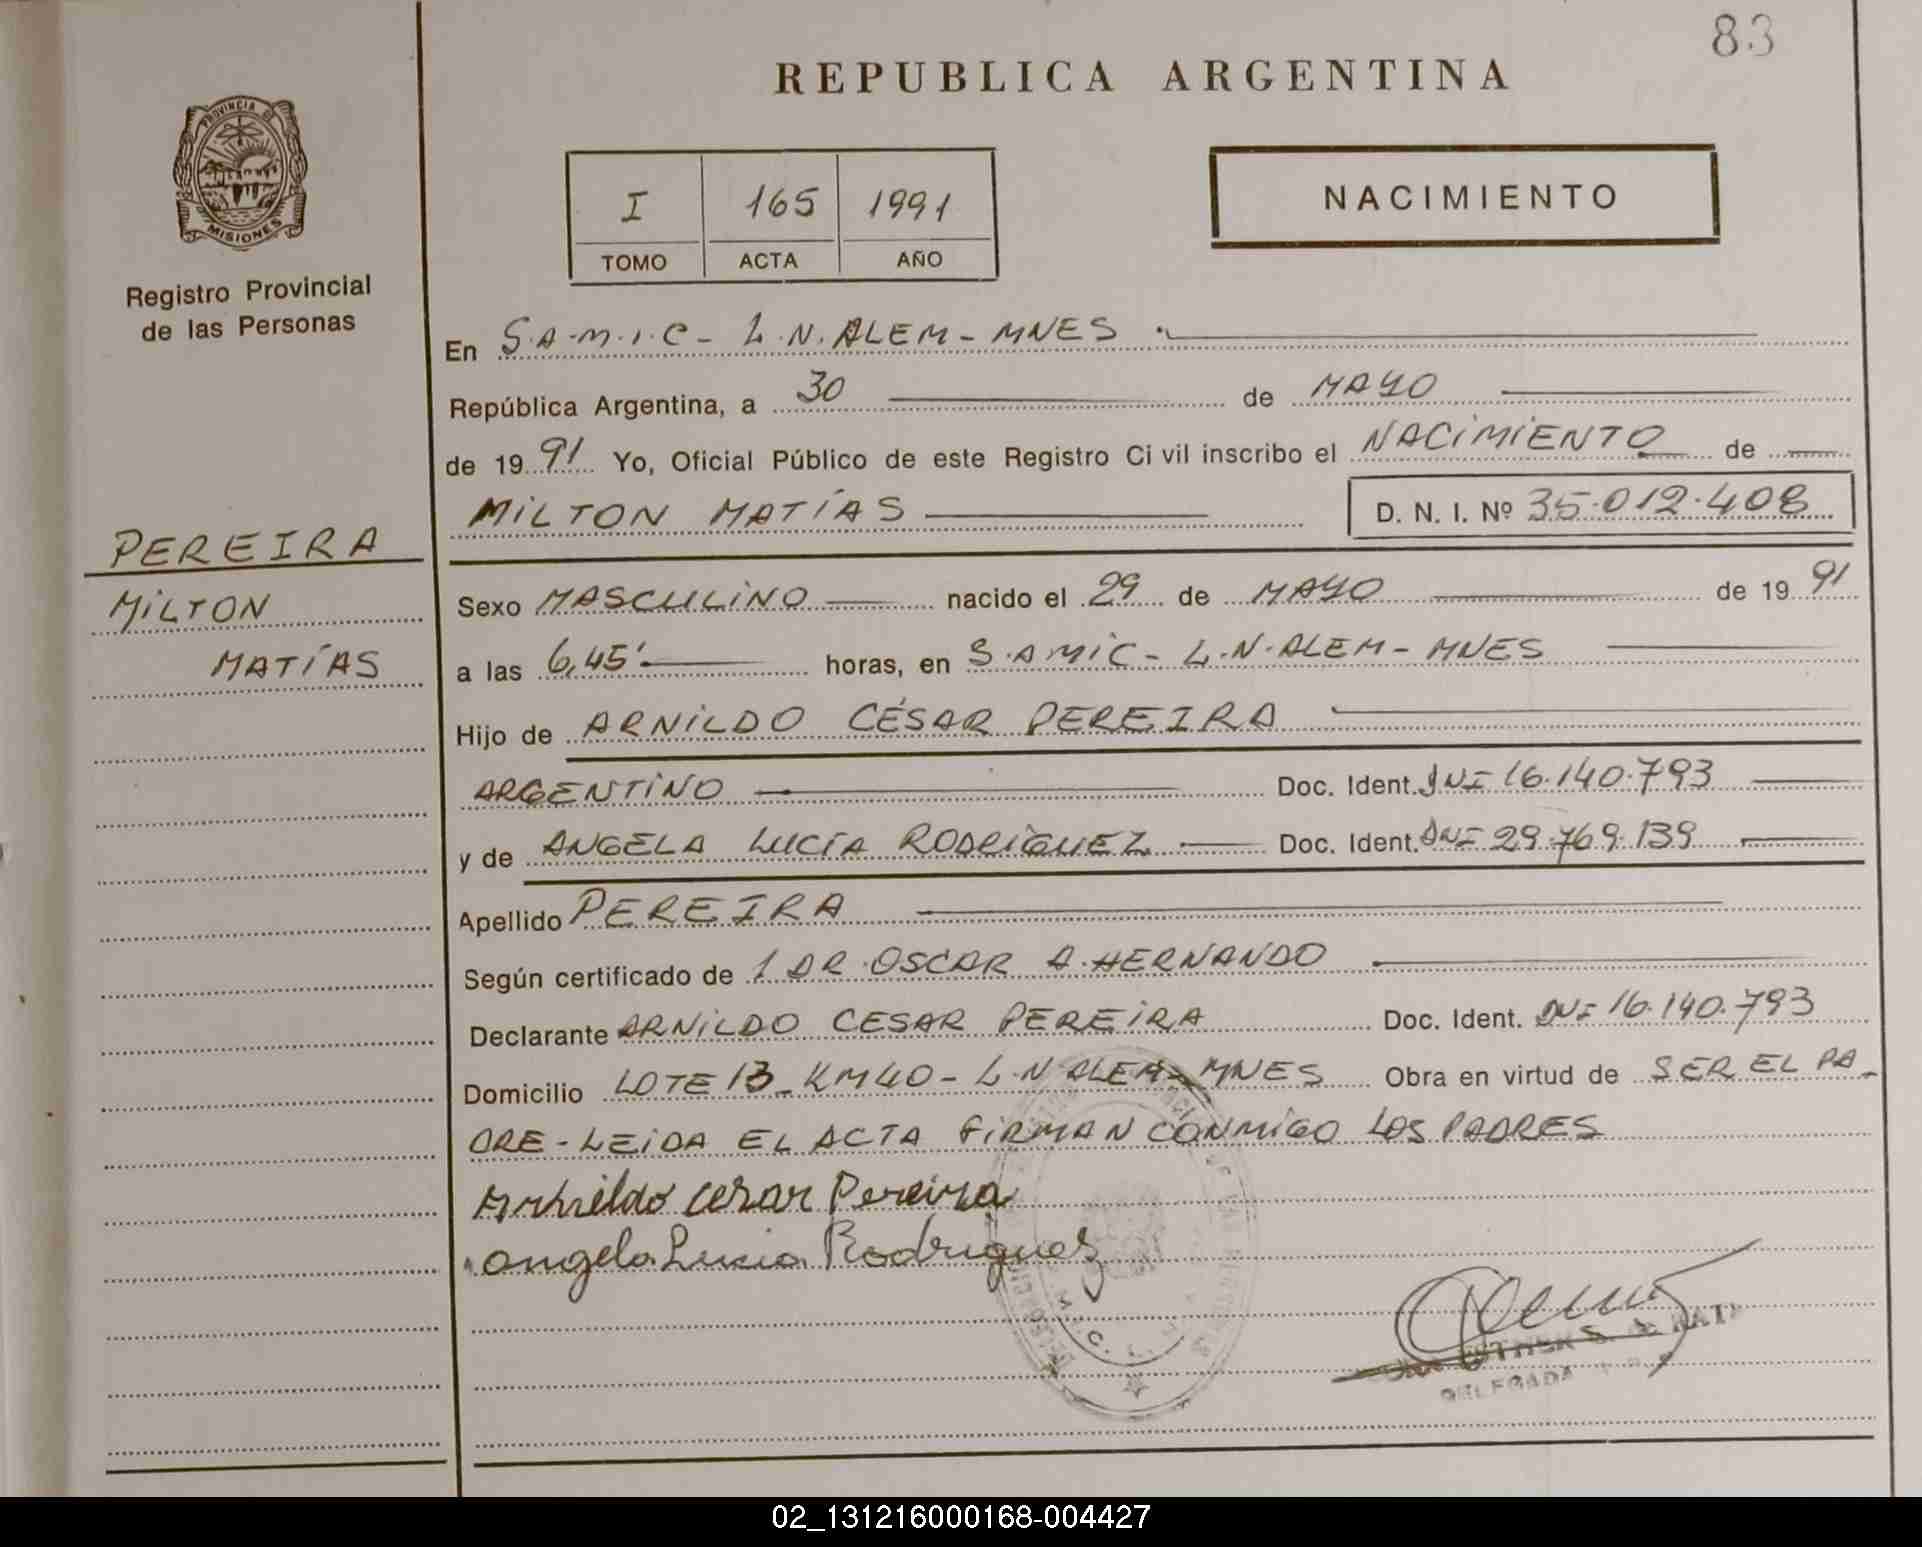 83
REPUBLICA ARGENTINA
PROVINCIA DE
MISIONES
Registro Provincial
de las Personas
I 165 1991
TOMO ACTA AÑO
NACIMIENTO
En S.A.M.I.C- L.N.ALEM-MNES
República Argentina, a 30 de MAYO
de 1991 Yo, Oficial Público de este Registro Ci vil inscribo el NACIMIENTO de
MILTON MATÍAS D. N. I. Nº 35.012.408
PEREIRA
MILTON
MATÍAS
Sexo MASCULINO nacido el 29 de MAYO de 1991
a las 6,45' horas, en S.AMIC- L.N.ALEM-MNES
Hijo de ARNILDO CÉSAR PEREIRA
ARGENTINO Doc. Ident. DNI 16.140.793
y de ANGELA LUCÍA RODRÍGUEZ Doc. Ident. DNI 29.769.139
Apellido PEREIRA
Según certificado de 1 DR.OSCAR A.HERNANDO
Declarante ARNILDO CESAR PEREIRA Doc. Ident. DNI 16.140.793
Domicilio LOTE 13-KM40-L.N ALEM-MNES Obra en virtud de SER EL PA-
DRE-LEIDA EL ACTA FIRMAN CONMIGO LOS PADRES
Arnildo Cesar Pereira
Angela Lucia Rodriguez
ESTHER S. de
DELEGADA
02_131216000168-004427